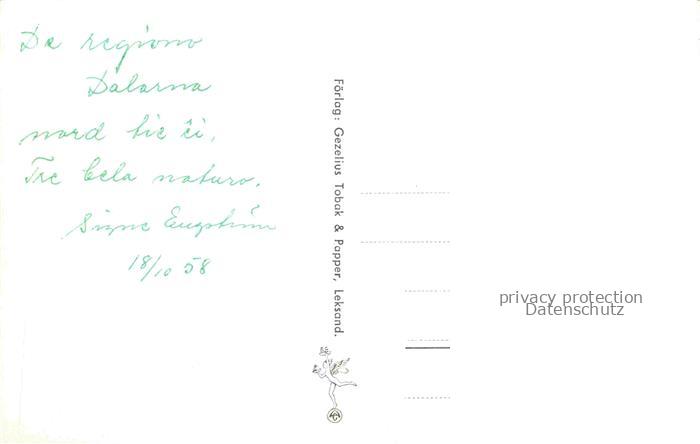 De regiono
Dalarna
nord tie ĉi.
Tre bela naturo.
Signe Engström
18/10 58
Förlag: Gezelius Tobak & Papper, Leksand.
privacy protection
Datenschutz